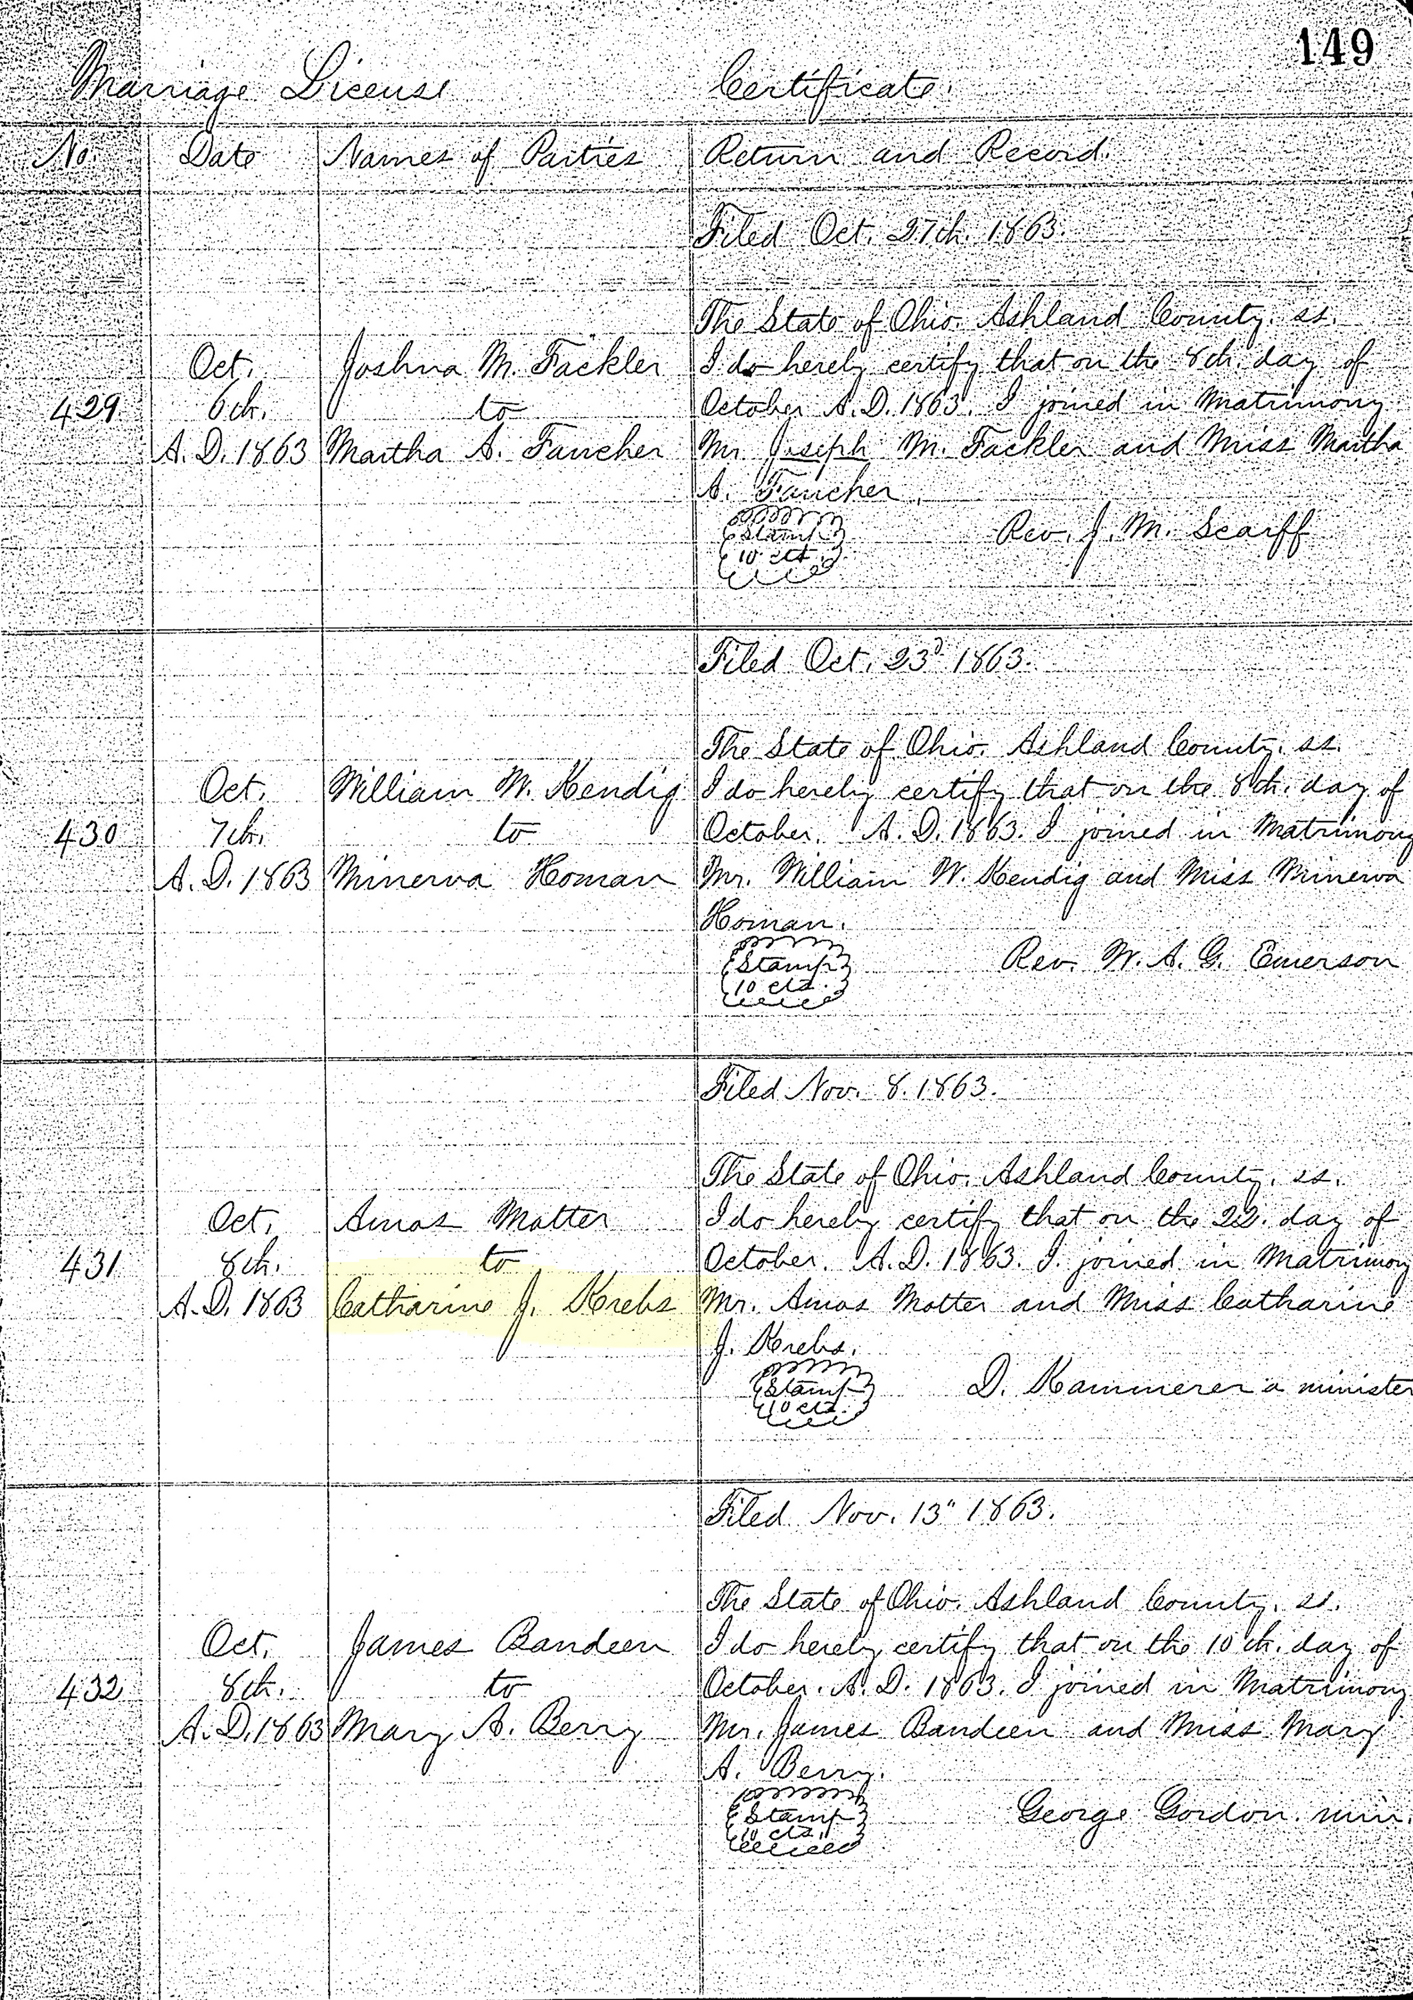 149
Marriage License Certificate.
No. Date Names of Parties Return and Record.
Filed Oct. 27th. 1863.
The State of Ohio. Ashland County. ss.
Oct. Joshua M. Fackler I do hereby certify that on the 8th. day of
429 6th. to October A.D. 1863. I joined in Matrimony
A.D. 1863 Martha A. Faucher Mr Joseph M. Fackler and Miss Martha
A. Faucher.
Stamp
10 cts. Rev. J. M. Scarff
Filed Oct. 23d 1863.
The State of Ohio. Ashland County. ss.
Oct. William W. Kendig I do hereby certify that on the 8th. day of
430 7th. to October. A.D. 1863. I joined in Matrimony
A.D. 1863 Minerva Homan Mr. William W. Kendig and Miss Minerva
Homan.
Stamp
10 cts. Rev. W. A. G. Emerson
Filed Nov. 8. 1863.
The State of Ohio. Ashland County. ss.
Oct. Amos Motter I do hereby certify that on the 22. day of
431 8th. to October. A.D. 1863. I joined in Matrimony
A.D. 1863 Catharine J. Krebs Mr. Amos Motter and Miss Catharine
J. Krebs.
Stamp
10 cts. D. Kammerer a minister
Filed Nov. 13" 1863.
The State of Ohio. Ashland County. ss.
Oct. James Bandeen I do hereby certify that on the 10th. day of
432 8th. to October. A.D. 1863. I joined in Matrimony
A.D. 1863 Mary A. Berry Mr. James Bandeen and Miss Mary
A. Berry.
Stamp
10 cts. George Gordon. min.